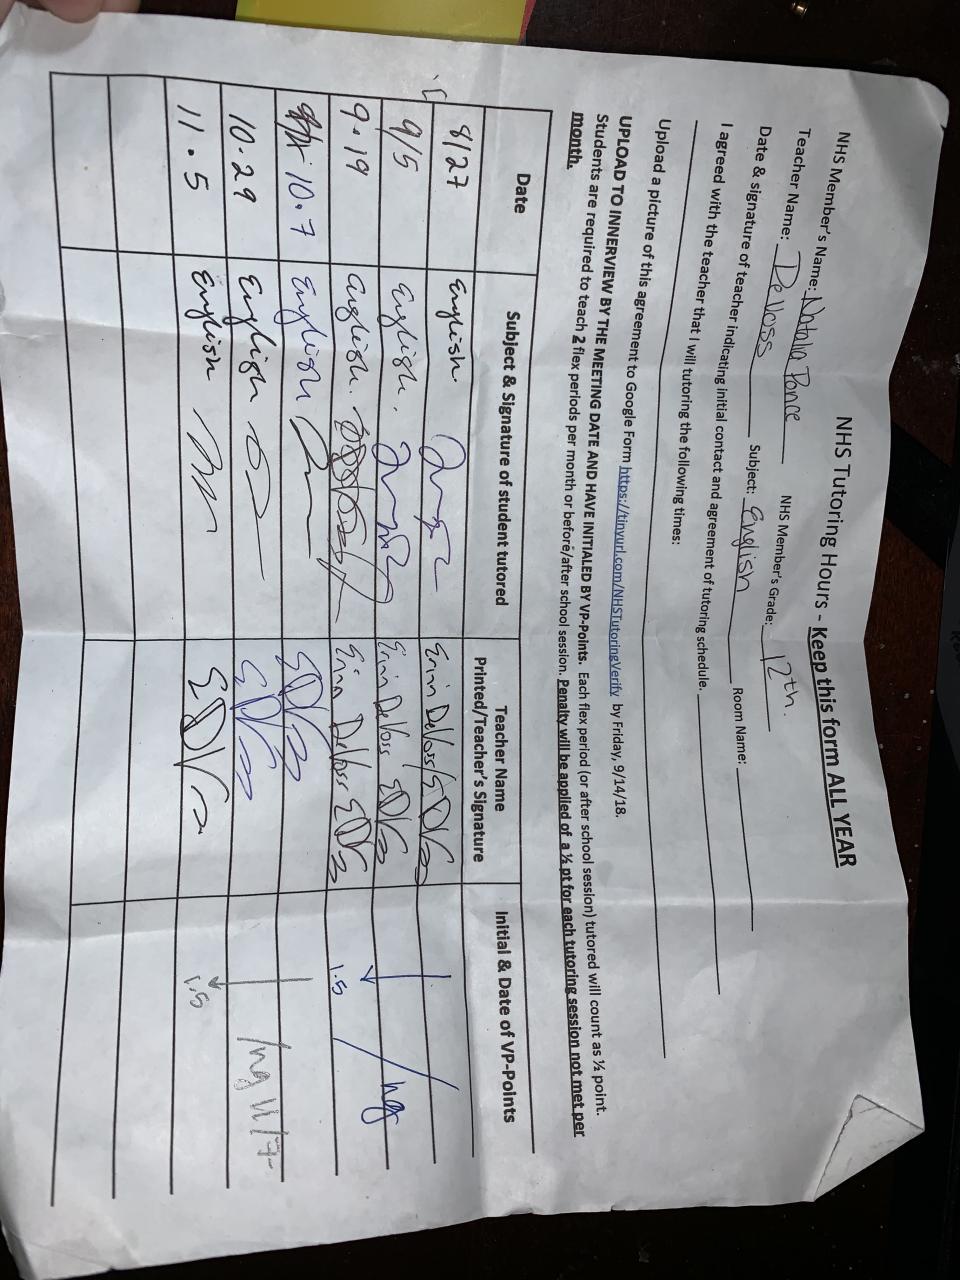 NHS Tutoring Hours - Keep this form ALL YEAR
NHS Member's Name: Natalia Ponce NHS Member's Grade: 12th.
Teacher Name: DeVoss Subject: English Room Name:
Date & signature of teacher indicating initial contact and agreement of tutoring schedule.
I agreed with the teacher that I will tutoring the following times:
Upload a picture of this agreement to Google Form https://tinyurl.com/NHSTutoringVerify by Friday, 9/14/18.
UPLOAD TO INNERVIEW BY THE MEETING DATE AND HAVE INITIALED BY VP-Points. Each flex period (or after school session) tutored will count as ½ point.
Students are required to teach 2 flex periods per month or before/after school session. Penalty will be applied of a ½ pt for each tutoring session not met per
month.
Date Subject & Signature of student tutored Teacher Name Printed/Teacher's Signature Initial & Date of VP-Points
8/27 English Erin DeVoss/
9/5 English. Erin DeVoss /ng
9.19 English. Erin DeVoss 1.5
10.7 English
10.29 English /ng 11/7
11.5 English 1.5